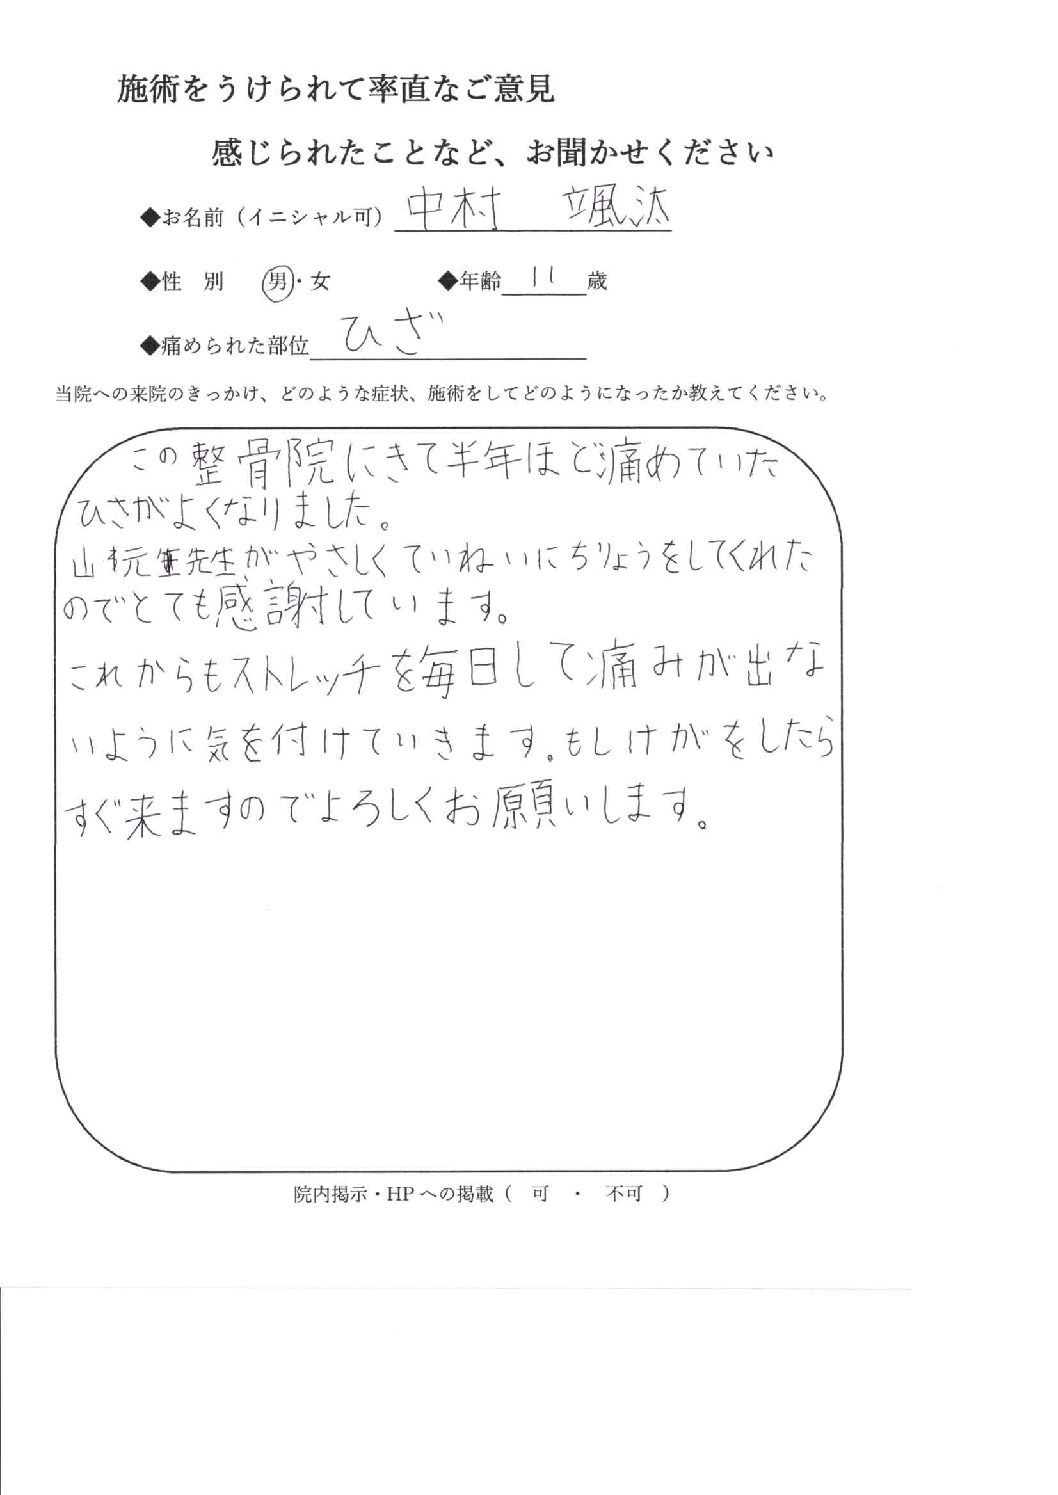 施術をうけられて率直なご意見
感じられたことなど、お聞かせください
◆お名前（イニシャル可） 中村 颯汰
◆性 別 男・女 ◆年齢 11 歳
◆痛められた部位 ひざ
当院への来院のきっかけ、どのような症状、施術をしてどのようになったか教えてください。
この整骨院にきて半年ほど痛めていた
ひざがよくなりました。
先生がやさしくていねいにちりょうをしてくれた
のでとても感謝しています。
これからもストレッチを毎日して痛みが出な
いように気を付けていきます。もしけがをしたら
すぐ来ますのでよろしくお願いします。
院内掲示・HPへの掲載（ 可 ・ 不可 ）